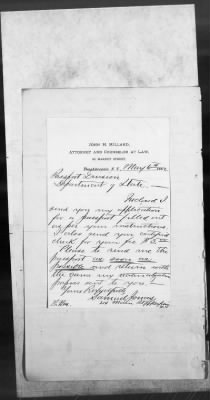 JOHN H. MILLARD,
ATTORNEY AND COUNSELOR AT LAW,
MARKET STREET,
May 6th
Passport Division
Department of State.
Enclosed I
send you my application
for a passport filled out
as per your instructions
I also send your certified
check for your fee
Please to send me the
passport as soon as
possible and return with
the same my naturalization
papers sent to you —
Yours Respectfully
Samuel